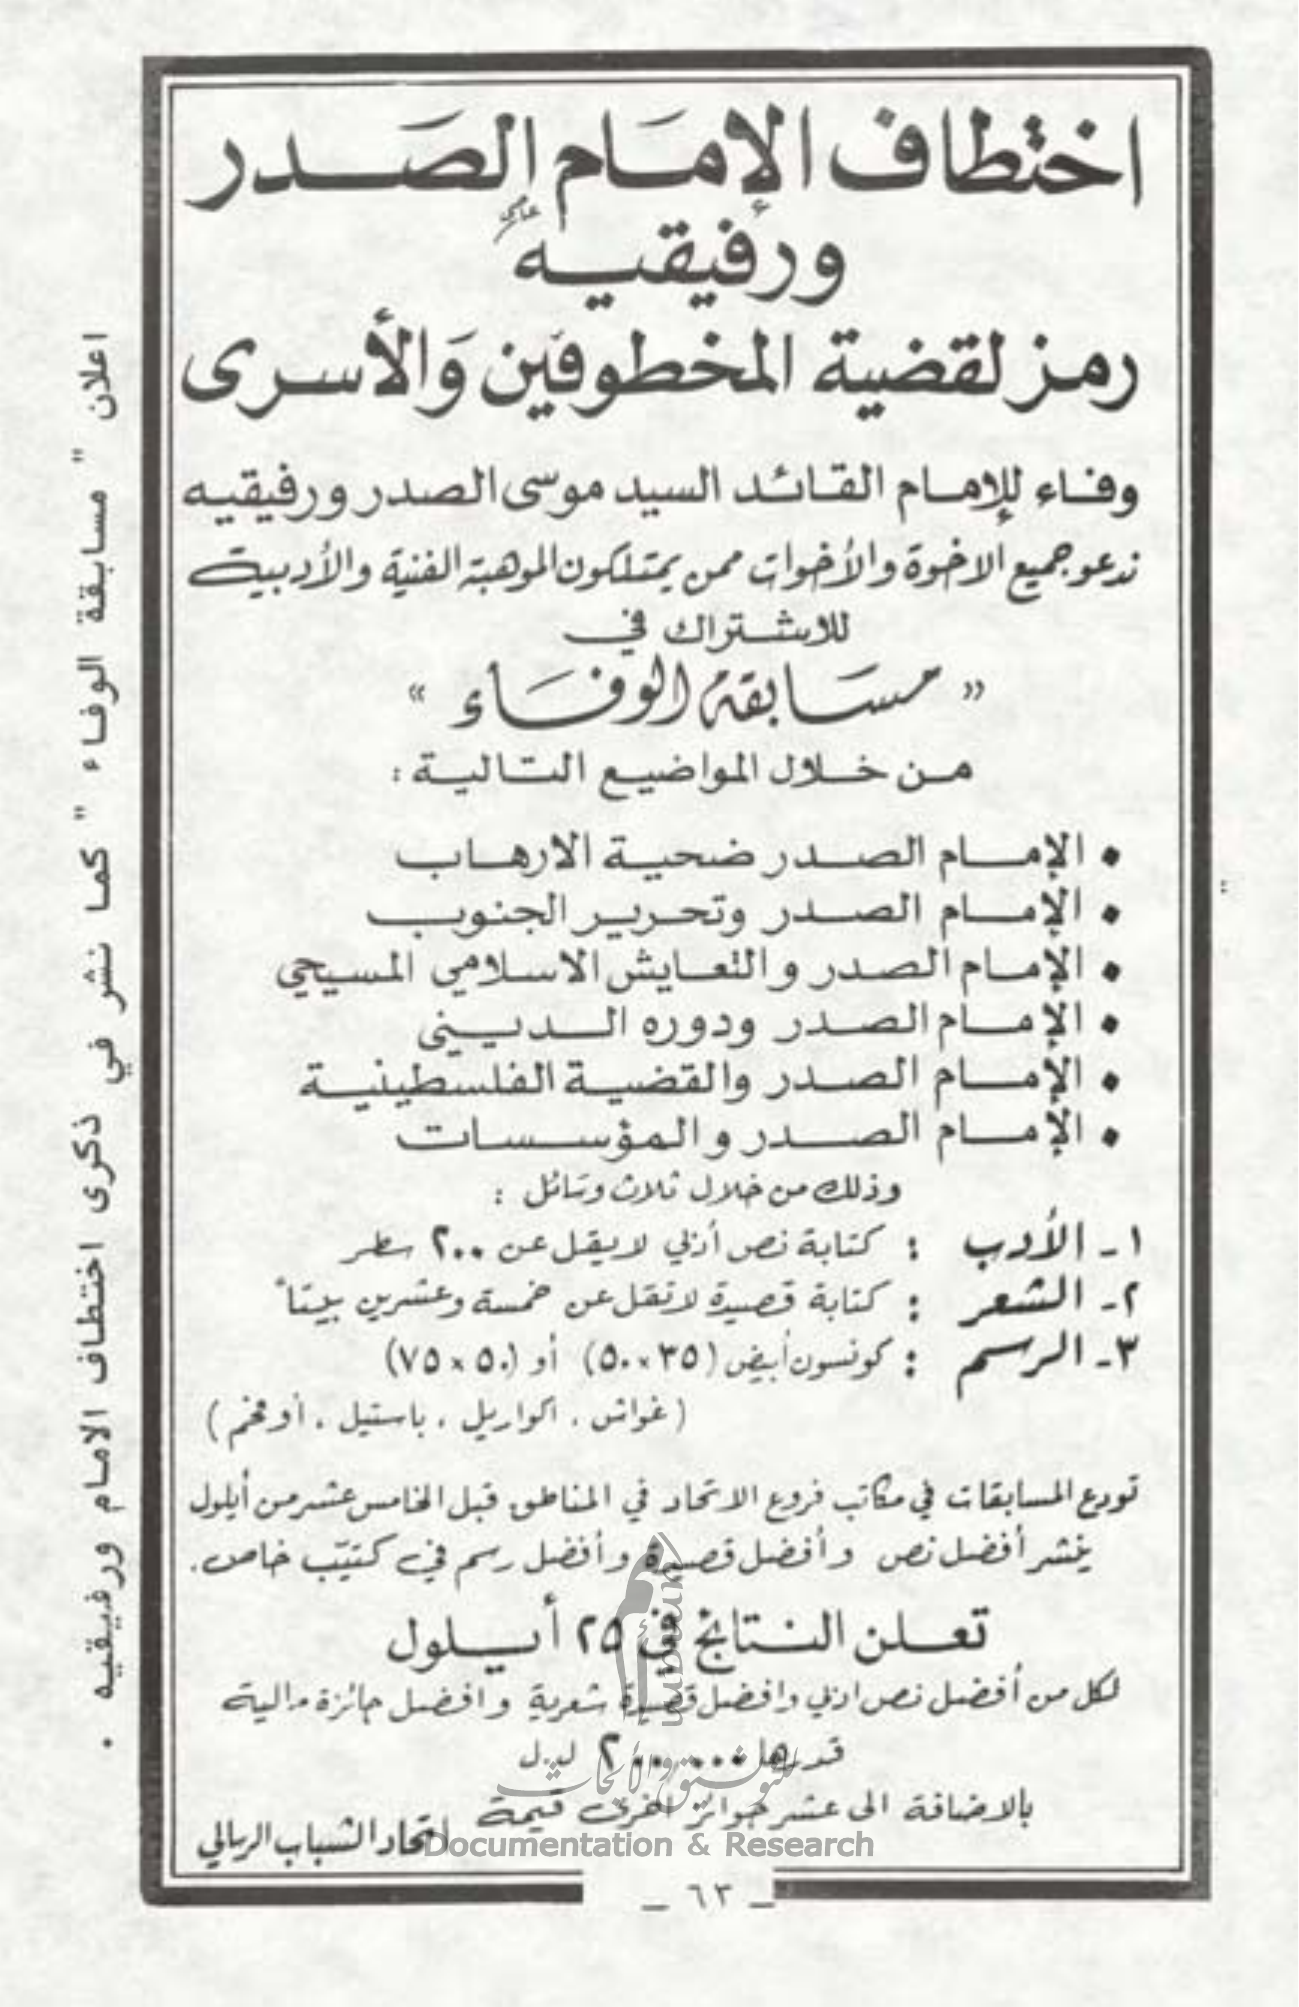 اختطاف الإمام الصدر
ورفيقيه
رمز لقضية المخطوفين والأسرى
وفاء للإمام القائد السيد موسى الصدر ورفيقيه
ندعو جميع الاخوة والأخوات ممن يمتلكون الموهبة الفنية والأدبية
للاشتراك في
« مسابقة الوفاء »
من خلال المواضيع التالية :
• الإمام الصدر ضحية الارهاب
• الإمام الصدر وتحرير الجنوب
• الإمام الصدر والتعايش الاسلامي المسيحي
• الإمام الصدر ودوره الديني
• الإمام الصدر والقضية الفلسطينية
• الإمام الصدر والمؤسسات
وذلك من خلال ثلاث وسائل :
١ - الأدب : كتابة نص أدبي لا يقل عن ٢٠٠ سطر
٢ - الشعر : كتابة قصيدة لا تقل عن خمسة وعشرين بيتاً
٣ - الرسم : كونسون أبيض (٣٥ × ٥٠) أو (٥٠ × ٧٥)
( غواش ، اكواريل ، باستيل ، أو فحم )
تودع المسابقات في مكاتب فروع الاتحاد في المناطق قبل الخامس عشر من أيلول
ينشر أفضل نص وأفضل قصيدة وأفضل رسم في كتيّب خاص .
تعلن النتائج في ٢٥ أيلول
لكل من أفضل نص ادبي وافضل قصيدة شعرية وافضل جائزة مالية
قدرها ل.ل
بالاضافة الى عشر جوائز اخرى قيمة
اتحاد الشباب الرسالي
– ٦٣ –
اعلان " مسابقة الوفاء " كما نشر في ذكرى اختطاف الامام ورفيقيه .
أمم
umam
للتوثيق والأبحاث
Documentation & Research